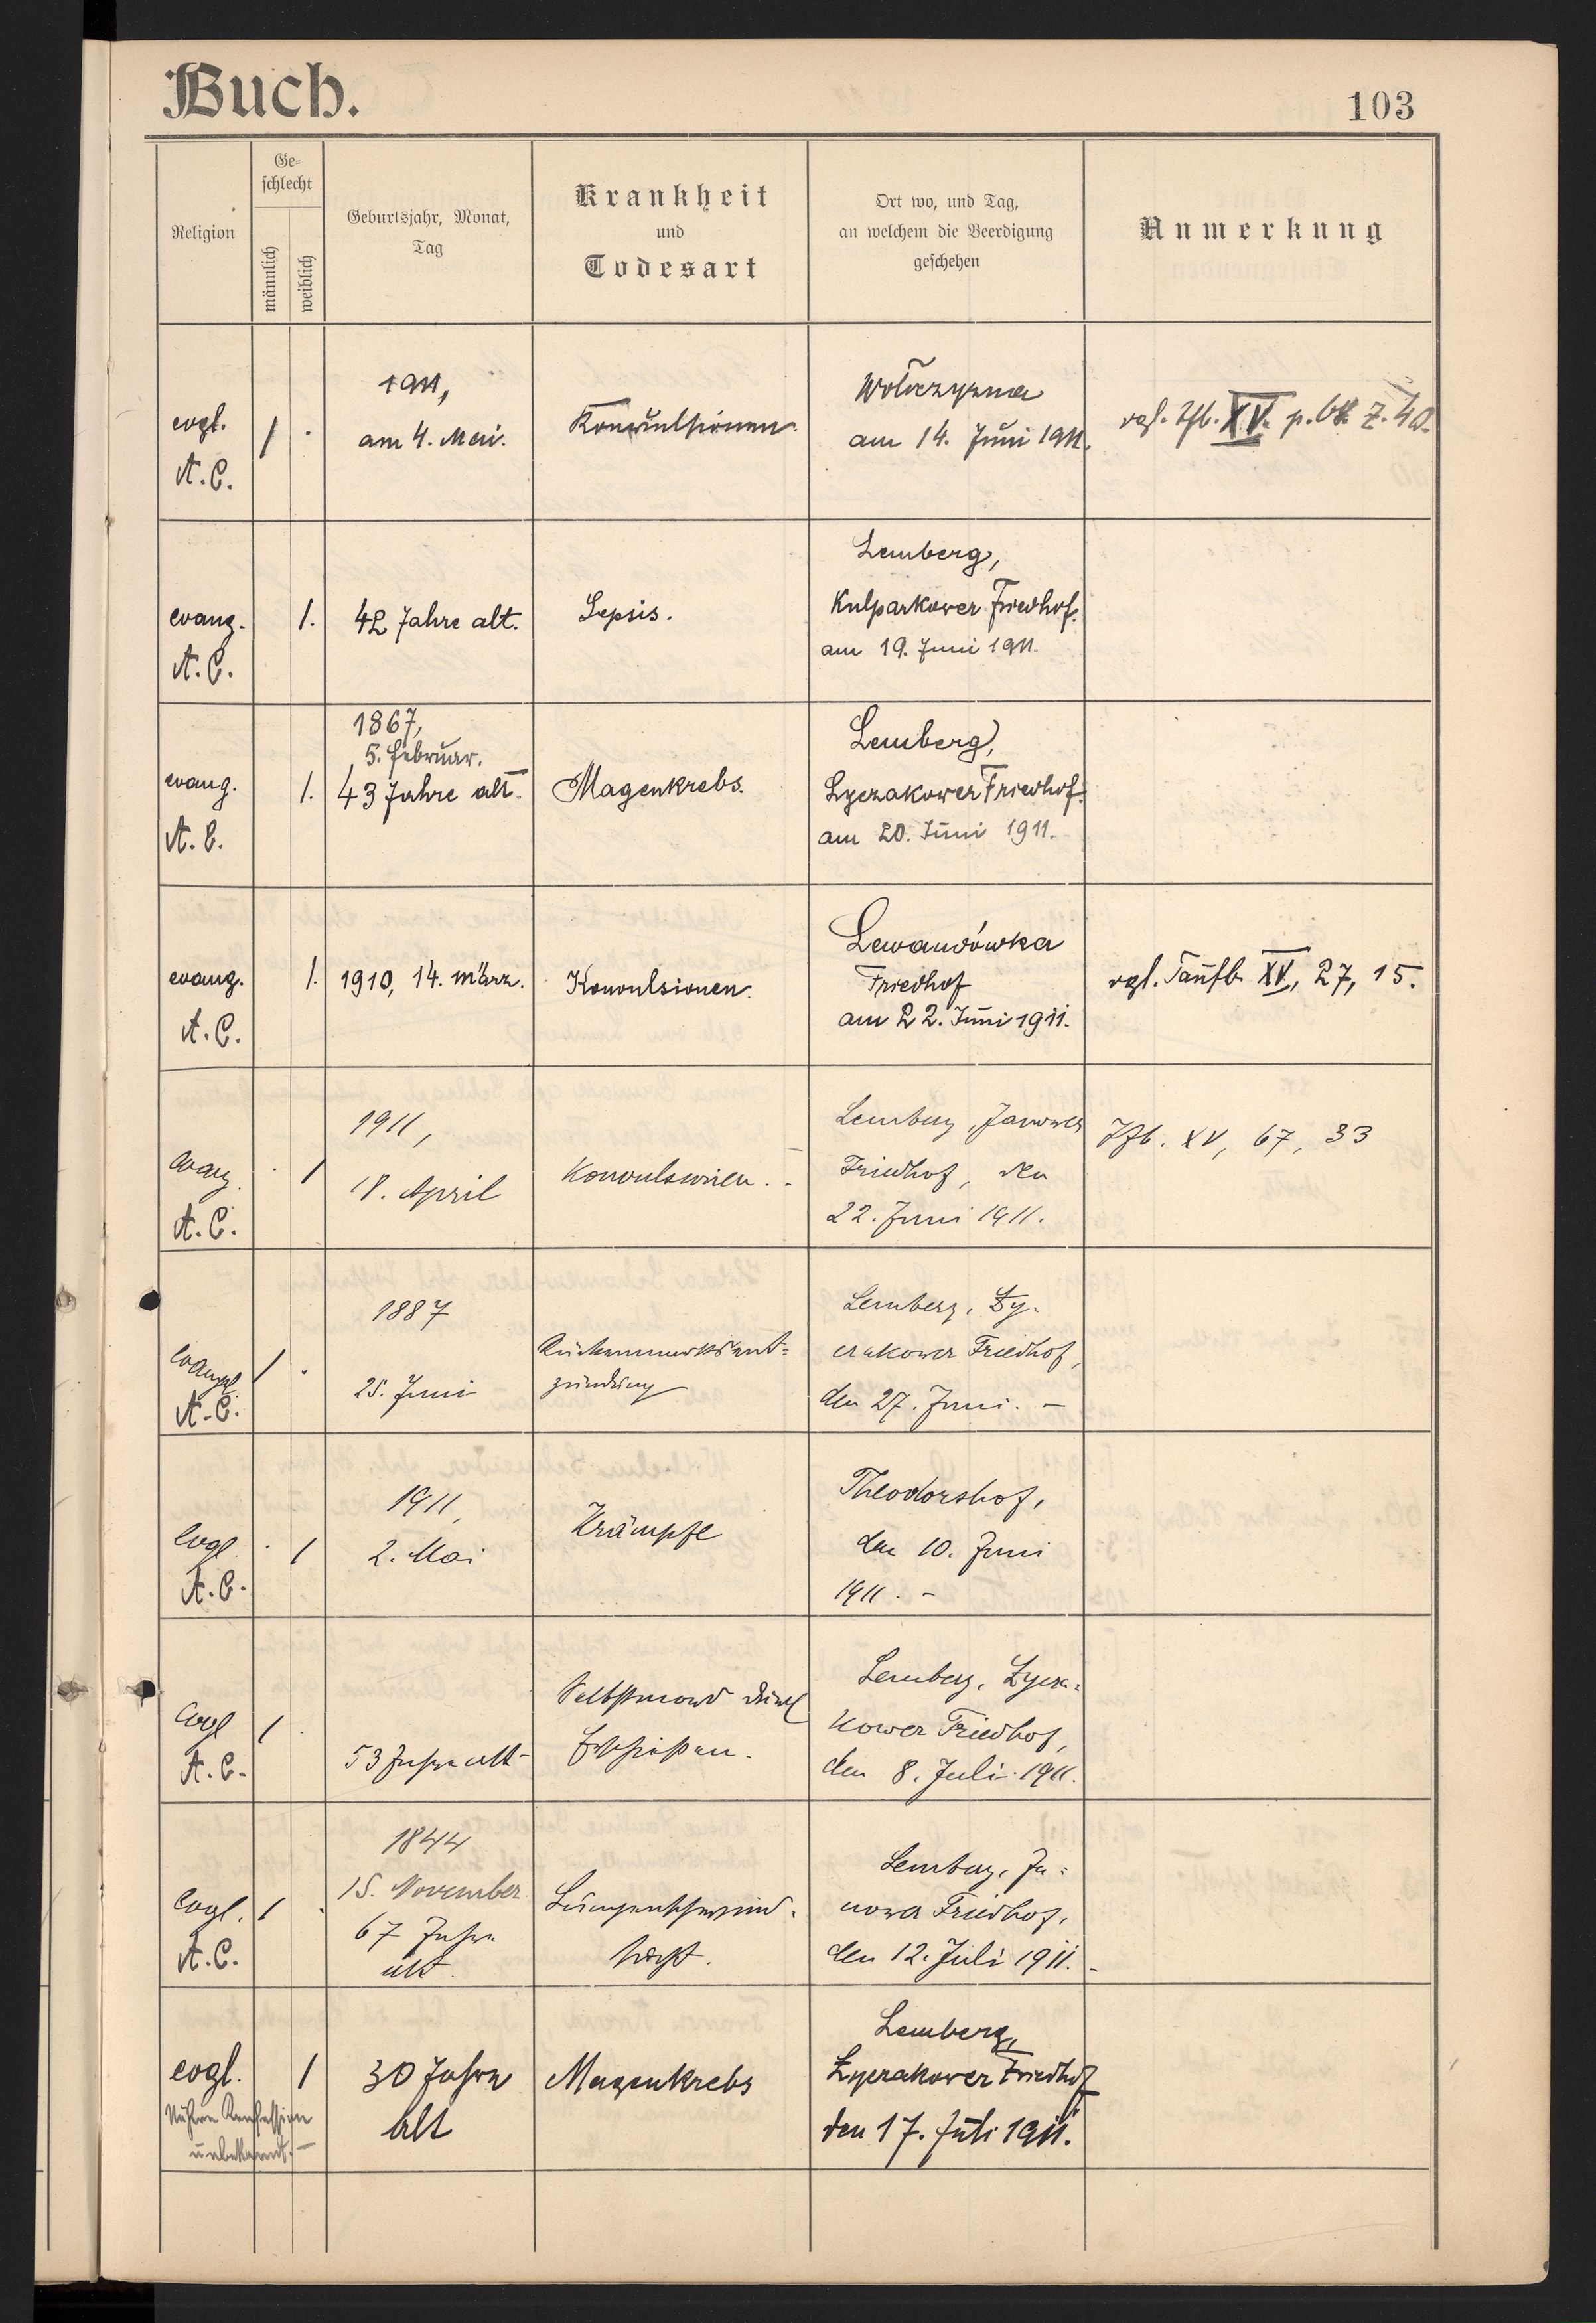 Buch.
103
Religion
Ge-
schlecht
männlich
weiblich
Geburtsjahr, Monat,
Tag
Krankheit
und
Todesart
Ort wo, und Tag,
an welchem die Beerdigung
geschehen
Anmerkung
evgl.
A.C.
1 .
1911,
am 4. Mai.
Konvulsionen.
am 14. Juni 1911.
vgl. Tfb. XV. p. Z. 40.
evang.
A.C.
1.
42 Jahre alt.
Sepsis.
Lemberg,
Kulparkower Friedhof.
am 19. Juni 1911.
evang.
A.C.
1.
1867,
5. Februar.
43 Jahre alt.
Magenkrebs.
Lemberg,
Lyczakower Friedhof.
am 20. Juni 1911.
evang.
A.C.
1.
1910, 14. März.
Konvulsionen.
Lewandówka
Friedhof
am 22. Juni 1911.
vgl. Taufb. XV, 27, 15.
evang.
A.C.
. 1
1911,
18. April
Konvulsionen.
Lemberg, Janower
Friedhof, den
22. Juni 1911.
Tfb. XV, 67, 33
evangel.
A.C.
1 .
1887
25. Juni
Rückenmarksent=
zündung
Lemberg, Ły-
czakower Friedhof,
den 27. Juni. –
evgl.
A.C.
. 1
1911,
2. Mai
Krämpfe
Theodorshof,
den 10. Juni
1911. –
evgl
A.C.
1 .
53 Jahre alt
Selbstmord durch
Erschießen.
Lemberg, Łycza=
kower Friedhof,
den 8. Juli 1911.
evgl.
A.C.
1 .
1844
15. November.
67 Jahre
alt.
Lungenschwind-
sucht.
Lemberg, Ja=
nower Friedhof,
den 12. Juli 1911.
evgl.
Nähere Konfession
unbekannt. –
1
30 Jahre
alt
Magenkrebs
Lemberg,
Łyczakower Friedhof
den 17. Juli 1911.